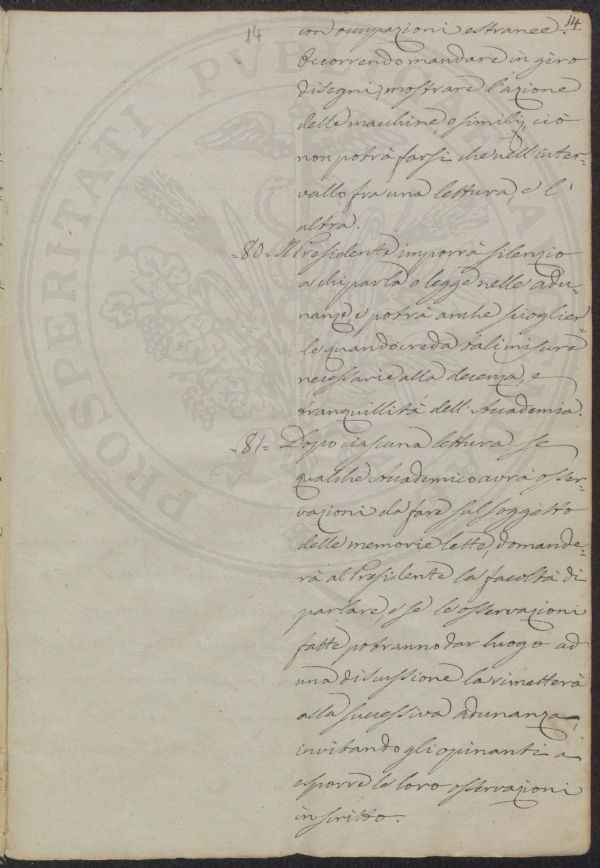 14
14
con occupazioni estranee.
Occorrendo mandare in giro
disegni, mostrare l'azione
delle macchine, o simili, ciò
non potrà farsi che nell'inter-
vallo fra una lettura, e l'
altra.
=80= Il Presidente imporrà silenzio
a chi parla o legge nelle adu-
nanze, e potrà anche scioglier-
le quando creda tali misure
necessarie alla decenza, e
tranquillità dell'Accademia.
=81= Dopo ciascuna lettura se
qualche Accademico avrà osser-
vazioni da fare sul soggetto
delle memorie lette, domande-
rà al Presidente la facoltà di
parlare, e se le osservazioni
fatte potranno dar luogo ad
una discussione la rimetterà
alla successiva adunanza,
invitando gli opinanti a
esporre le loro osservazioni
in scritto.
PROSPERITATI PUBLICAE AU